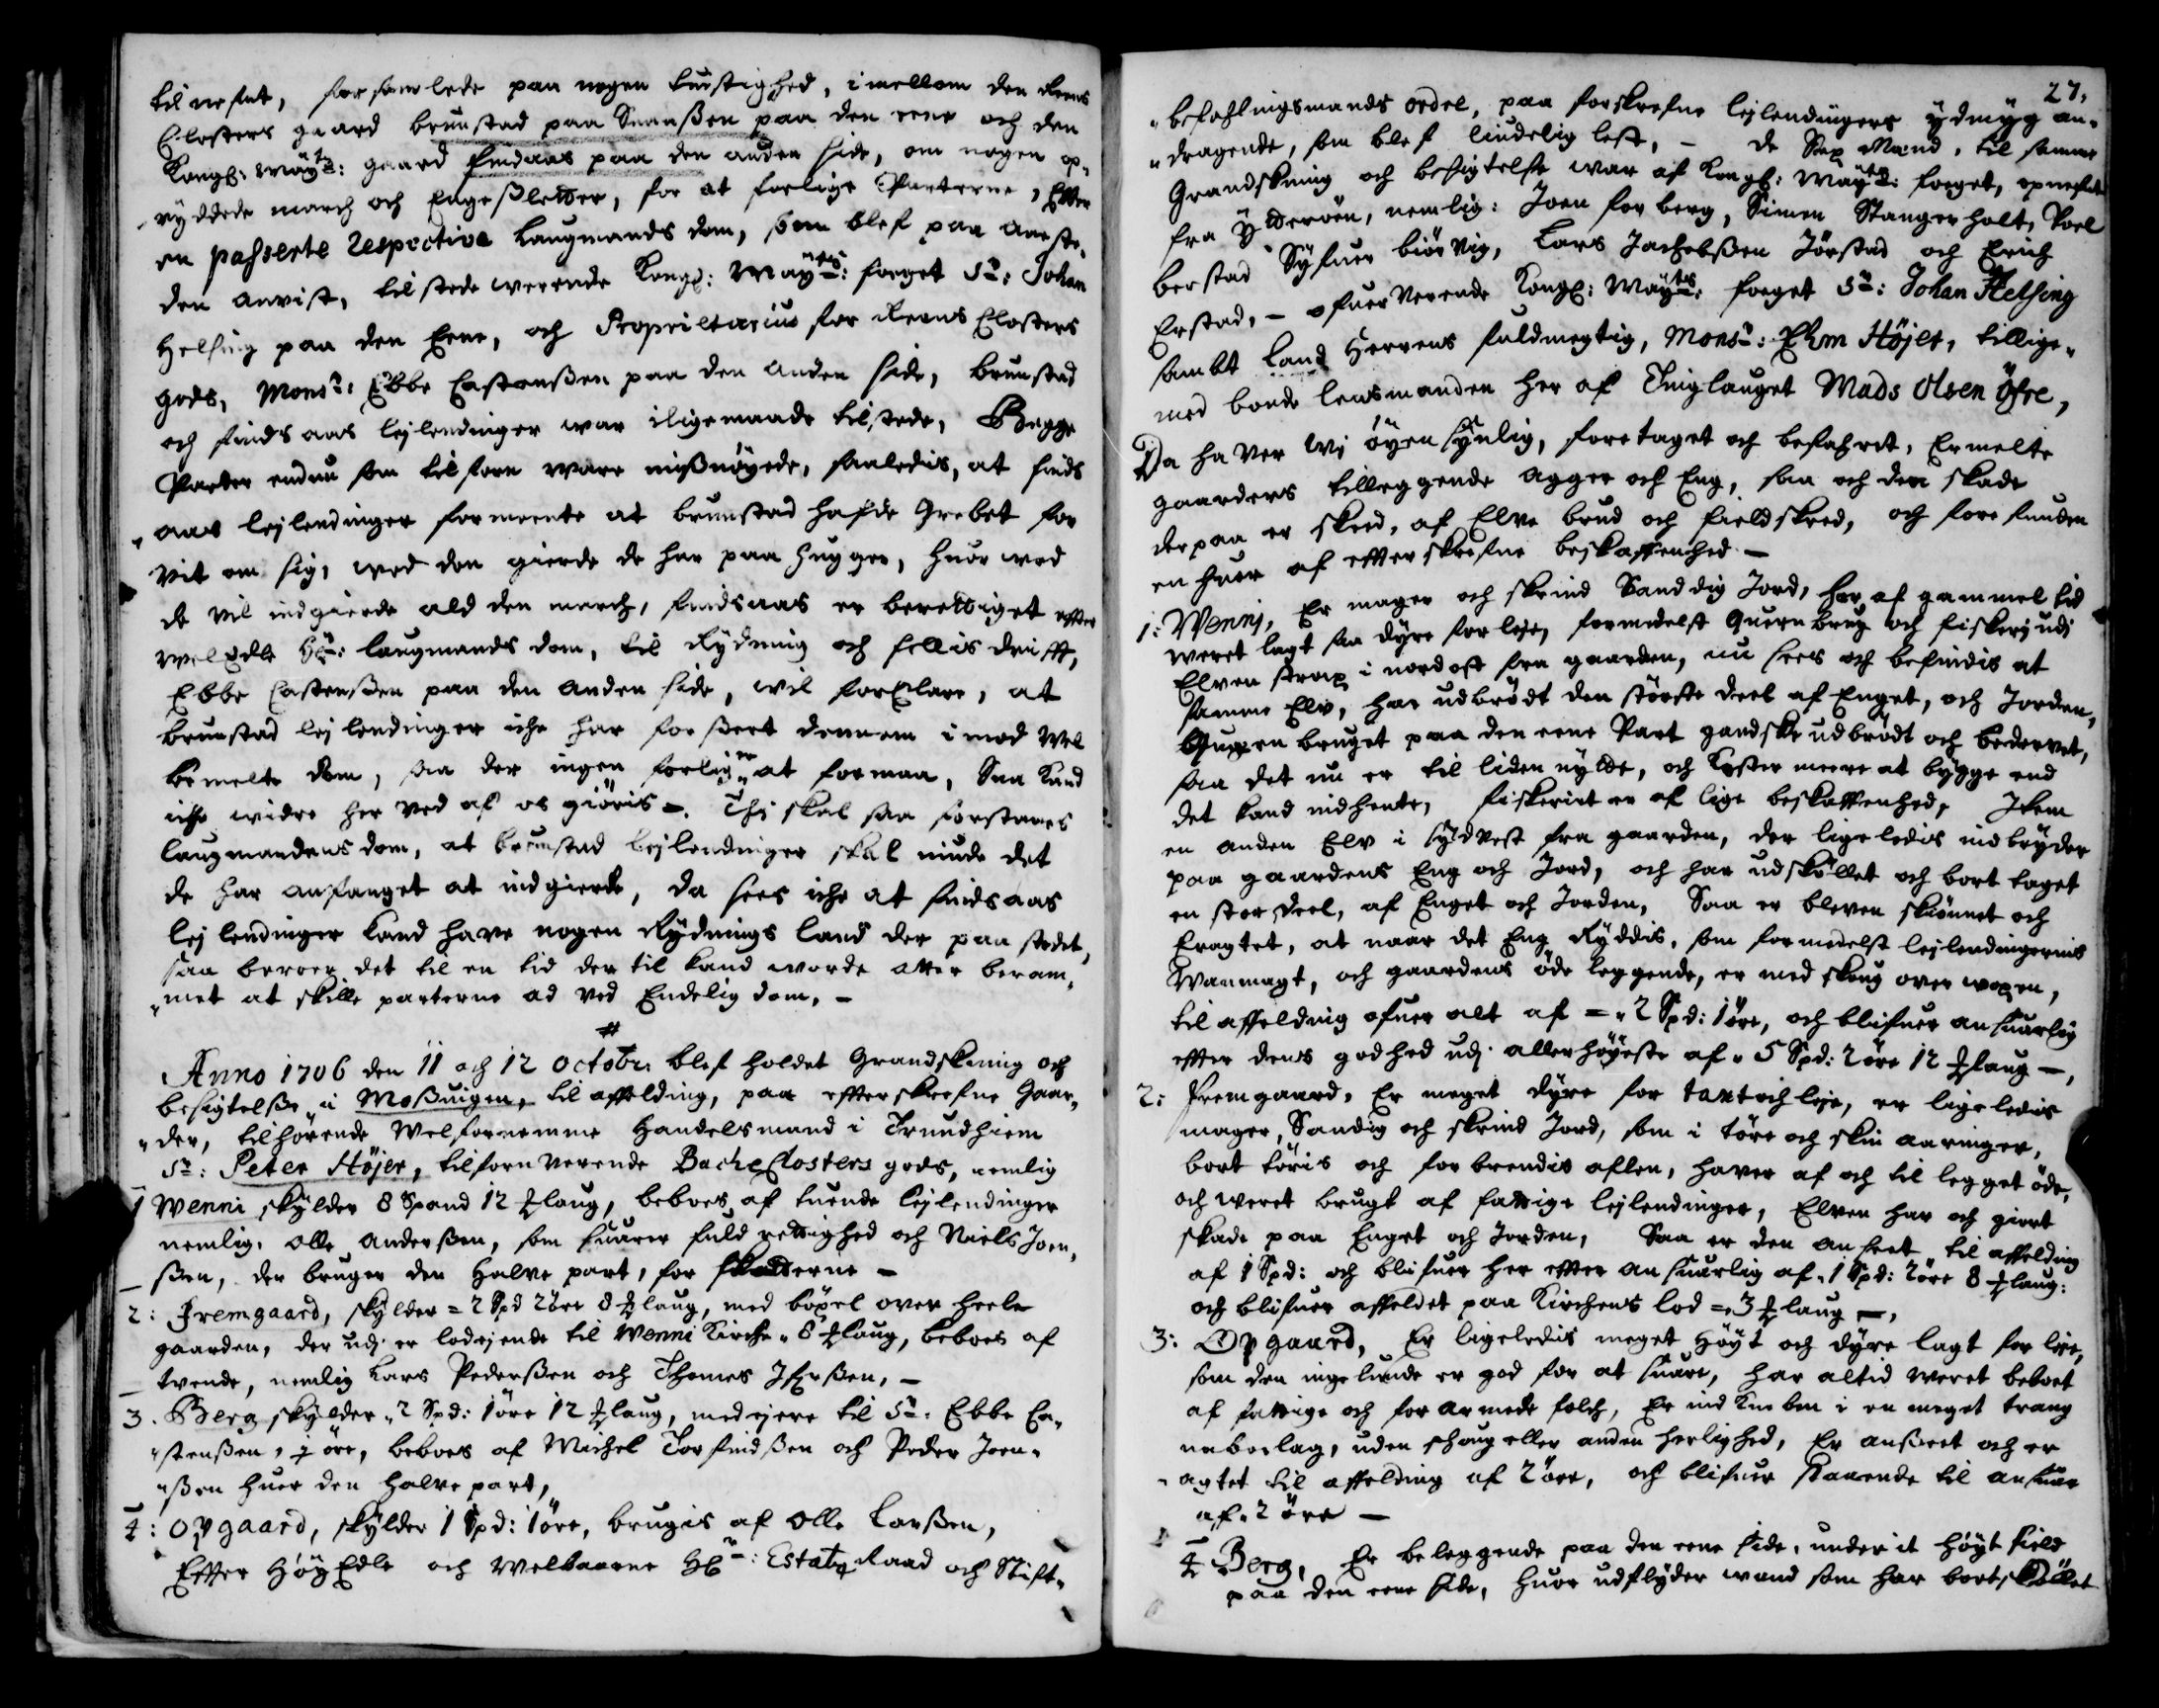 til nefnt, forsamlede paa nogen tuistighed, imellom den Reens
Closters gaard brunstad paa Snaaßen paa den eene och den
Kongl: Maÿts: gaard finsaas paa den anden side, om nogen op-
rÿddede march och Engeßletter, for at forlige Parterne, Efter
en passerte respective Laugmands dom, som blef paa aaste-
den anvist, tilstede werende Kongl: Maÿts: foget Sr: Johan
Helsing paa den Eene, och Proprietarius for Reens Closters
gods, Monsr: Ebbe Castenßen paa den anden side, brunstad
och finds aas lejlendinger war iligemaade tilstede, Begge
Parter endnu som tilforn ware mißnöyede, saaledis, at finds
aas lejlendinger formeente at brunstad hafde Grebet for
vit om sig, wed den gierde de har paa hugger, huor wed
de vil indgierde ald den march, findsaas er berettiget efter
welEdle Hr: laugmands dom, til Rÿdning och fellis drifft,
Ebbe Castenßen paa den anden side, wil forClare, at
brunstad lejlendinger iche har forßeet dennem imod Wel
bemelte dom, saa der ingen forlig er at formaa, Saa kand
iche widre her ved af os giöris –. Thj skal saa forstaaes
laugmandens dom, at brunstad lejlendinger skal niude det
de har anfanget at indgierde, da sees iche at findsaas
lejlendinger kand have nogen Rÿdnings land der paa stedet,
saa beroer det til en tid der til kand worde atter beram-
met at skille parterne ad ved Endelig dom, –
#
Anno 1706 den 11 och 12 octobr: blef holdet Grandskning och
besigtelße i Moßuigen, til affelding, paa effterskrefne Gaar-
der, tilhörende Welfornemme Handelsmand i Trundhiem
Sr: Peter Höjer, tilforn verende Bache Closters gods, nemlig
1 Wenni skÿlder 8 Spand 12 laug, beboes af tuende lejlendinger
nemlig. Olle Anderßen, som suarer fuld rettighed och Niels Joen-
ßen, der bruger den halve part, for skatterne –
2: Fremgaard, skÿlder = 2 Spd 2öre 8 laug, med böxel over heele
gaarden, der udj er lodejende til Wenni Kirche 8 laug, beboes af
tvende, nemlig Lars Pederßen och Thomes Ifverßen, –
3. Berg skÿlder 2 Spd: 1öre 12 laug, medejere til Sr: Ebbe Ca-
stenßen, 1 öre, beboes af Michel Torfindßen och Peder Joen-
ßen huer den halve part,
4: Opgaard, skÿlder 1 Spd: 1öre, brugis af Olle Larßen,
Effter HöyEdle och Welbaarne Hr: Estatz Raad och Stift-
27.
befahlingsmands ordre, paa forskrefne lejlendingers ÿdmyg an-
dragende, som blef liudelig lest, – de Sex Mænd, til samme
Grandskning och besigtelse war af Kongl: Maÿts: foget, opnefnt
fra Ÿtterøen, nemlig: Joen forberg, Simen Stangerholt, Poel
berstad Sÿfuer biörvig, Lars Jachobßen Jörstad och Erich
Erstad, – ofuerverende Kongl: Maÿts: foget Sr: Johan Helsing
sambt Land Herrens fuldmegtig, Monsr: Ehm Höjer, tillige-
med bonde lensmanden her af Tinglauget Mads Olsen Öfre,
Da haver wj öyensÿnlig, foretaget och befahret, Ermelte
gaarders tilleggende Agger och Eng, saa och den skade
derpaa er skeed, af Elve brud och fieldskred, och forefunden
en huer af effterskrefne beskaffenhed –
1: Wenni, Er mager och skrind Sanddig Jord, har af gammel tid
weret lagt saa dyre for leje, formedelst Quernbrug och fiskerj udj
Elven strax i nordost fra gaarden, nu sees och befindis at
samme Elv, har udbrödt den störste deel af Enget, och Jorden,
Quernbruget paa den eene Part gandske udbrödt och bedervet,
saa det nu er til liden nÿtte, och koster meere at bÿgge end
det kand indhente, fiskeriet er af lige beskaffenhed, Item
en anden Elv i sÿdvest fra gaarden, der ligeledis indbryder
paa gaardens Eng och Jord, och har udskÿllet och bort taget
en stor deel, af Enget och Jorden, Saa er bleven skiönnet och
Eragtet, at naar det Eng Rÿddis, som formedelst lejlendingernis
Wanmagt, och gaardens öde leggende, er med skoug over woxen,
til affelding ofuer alt af = 2 Spd: 1öre, och blifuer ansuarlig
effter dens godhed udj allerhöyeste af 5 Spd: 2öre 12 laug –,
2: Fremgaard, Er meget dÿre for taxt och leje, er ligeledis
mager, Sandig och skrind Jord, som i törre och skin aaringer,
bort töris och forbrendis aflen, haver af och til legget öde,
och weret brugt af fattige lejlendinger, Elven har och giort
skade paa Enget och Jorden, Saa er den anseet til affelding
af 1 Spd: och blifuer her effter ansuarlig af 1 Spd: 2öre 8 laug:
och blifuer affeldet paa Kirchens lod = 3 laug –,
3: Opgaard, Er ligeledis meget Höyt och dÿre lagt for leje,
som den ingelunde er god for at suare, har altid weret beboet
af fattige och forarmede folch, Er indknben i en meget trang
naboelag, uden schoug eller anden herlighed, Er anßeet och er
agtet til affelding af 2öre, och blifuer staaende til ansuar
af 2 öre –
4 Berg, Er beleggende paa den eene side, under it höyt field
paa den eene side, huor udflÿder wand som har bortskÿllet